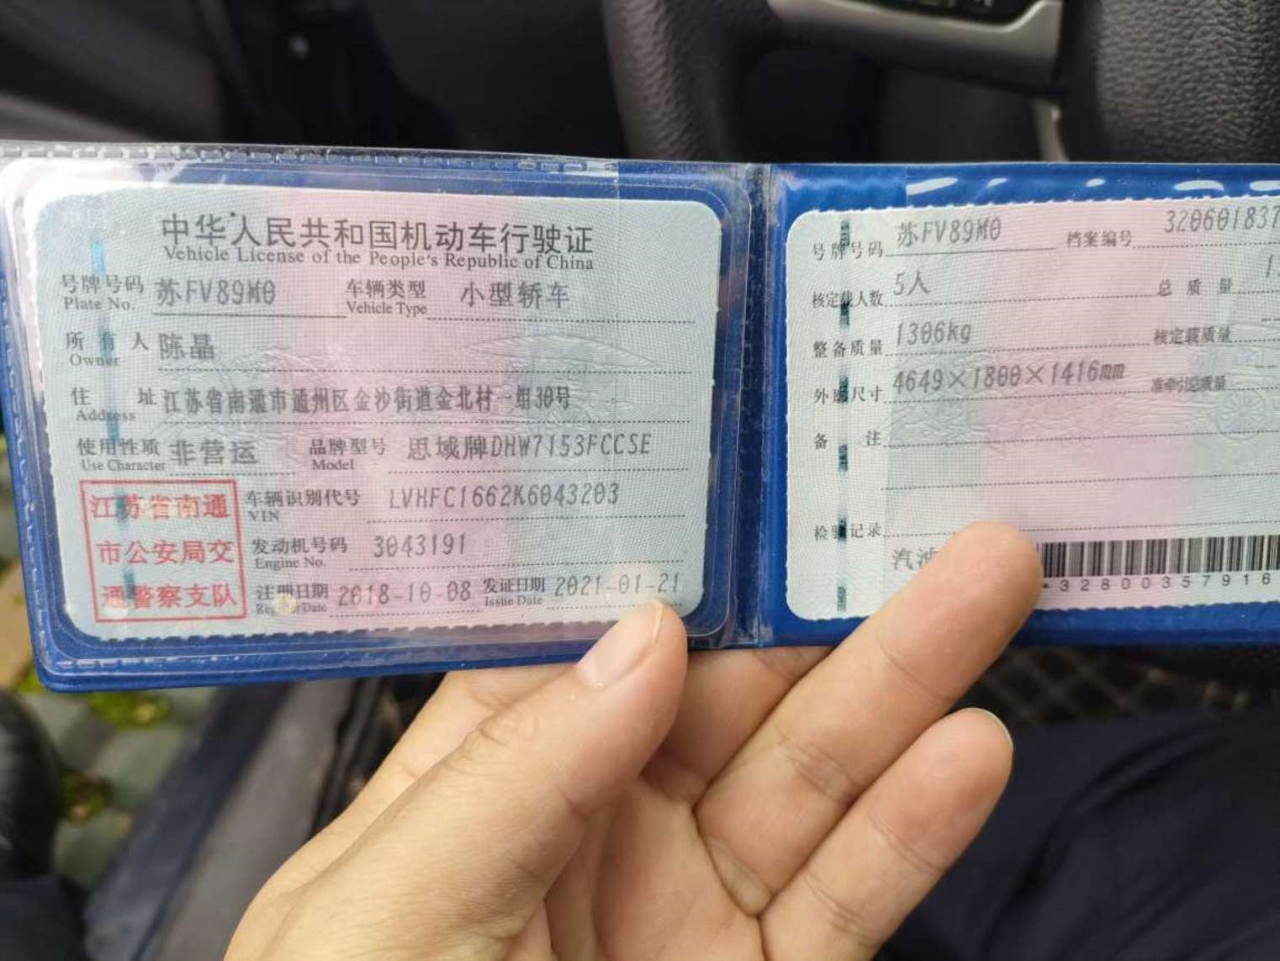 中华人民共和国机动车行驶证
Vehicle License of the People's Republic of China
号牌号码 苏FV89M0 车辆类型 小型轿车
Plate No. Vehicle Type
所有人 陈晶
Owner
住址 江苏省南通市通州区金沙街道金北村一组30号
Address
使用性质 非营运 品牌型号 思域牌DHW7153FCCSE
Use Character Model
江苏省南通
市公安局交
通警察支队
车辆识别代号 LVHFC1662K6043203
VIN
发动机号码 3043191
Engine No.
注册日期 2018-10-08 发证日期 2021-01-21
Register Date Issue Date
号牌号码 苏FV89M0 档案编号
核定载人数 5人 总质量
整备质量 1306kg 核定载质量
外廓尺寸 4649×1800×1416mm 准牵引总质量
备注
检验记录
汽油